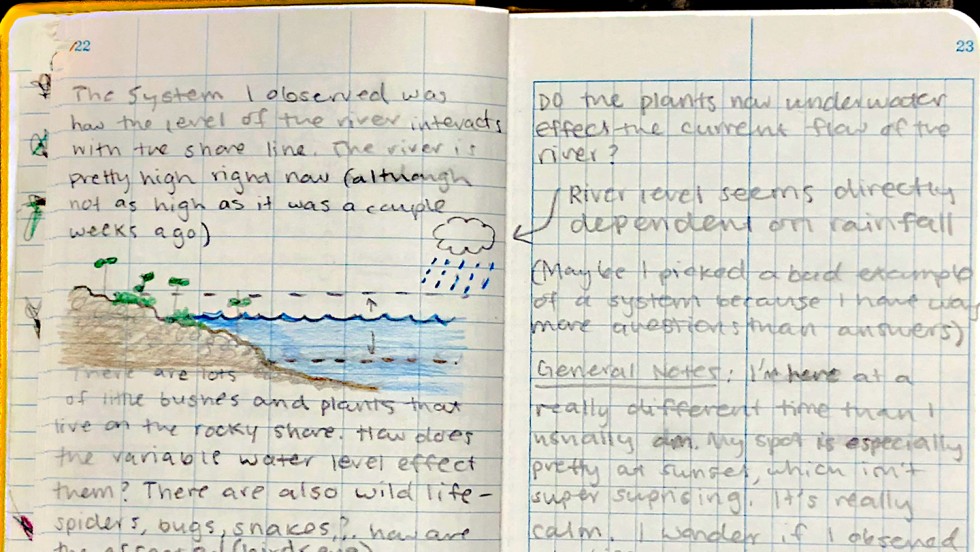 22
The system I observed was
how the level of the river interacts
with the shore line. The river is
pretty high right now (although
not as high as it was a couple
weeks ago)
There are lots
of little bushes and plants that
live on the rocky shore. How does
the variable water level effect
them? There are also wild life-
spiders, bugs, snakes,?. how are
23
DO the plants now underwater
effect the current flow of the
river?
River level seems directly
dependent on rainfall
(Maybe I picked a bad example
of a system because I have way
more questions than answers)
General Notes: I'm here at a
really different time than I
usually am. My spot is especially
pretty at sunset, which isn't
super suprising. It's really
calm. I wonder if I obsened